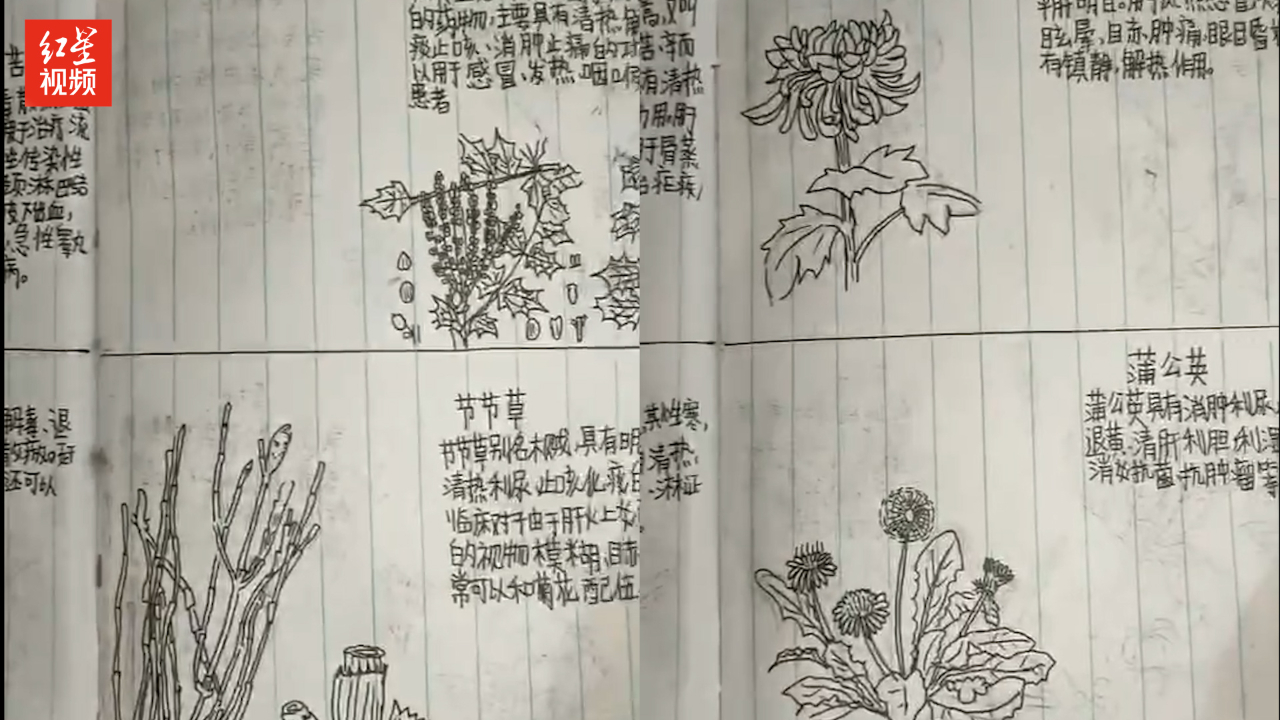 红星
视频
苦
于治疗流
性传染性
颈淋巴结
皮下出血,
急性睾丸
病。
的药物,主要具有清热解
痰止咳、消肿止痛的功
以用于感冒、发热、咽喉
患者
又叫
苦、辛而
有清热
力用。用于
于骨蒸
治疟疾
眩晕,目赤肿痛,眼目昏
有镇静,解热作用。
解毒、退
还可以
节节草
节节草别名木贼,具有明
清热利尿、止咳化痰
临床对于由于肝火上炎
的视物模糊、目赤
常可以和菊花配伍
其性寒,
清热
、淋证
蒲公英
蒲公英具有消肿利尿、
退黄、清肝利胆、利湿
消炎抗菌、抗肿瘤等